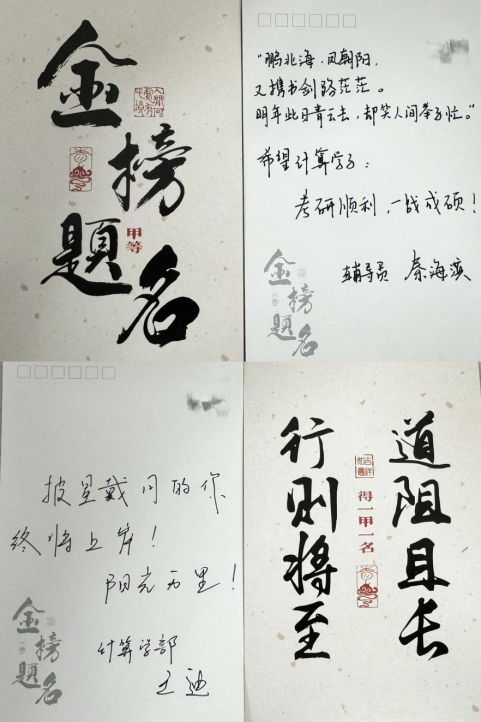 金榜題名
甲等
"鹏北海，凤朝阳，
又携书剑路茫茫。
明年此日青云去，却笑人间举子忙。"
希望计算学子：
考研顺利，一战成硕！
辅导员 秦海滨
金榜題名
披星戴月的你
终将上岸！
阳光万里！
计算学部
王迪
金榜題名
道阻且长
行则将至
得一甲一名